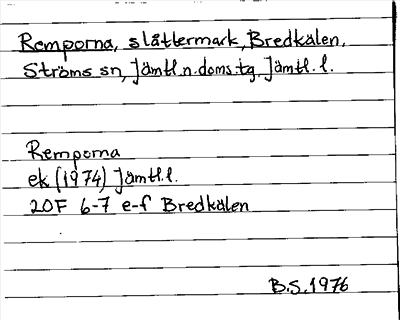 Remporna, slåttermark, Bredkälen,
Ströms sn, Jämtl.n.doms.tg, Jämtl.l.
Remporna
ek (1974) Jämtl.l.
20F 6-7 e-f Bredkälen
B.S. 1976